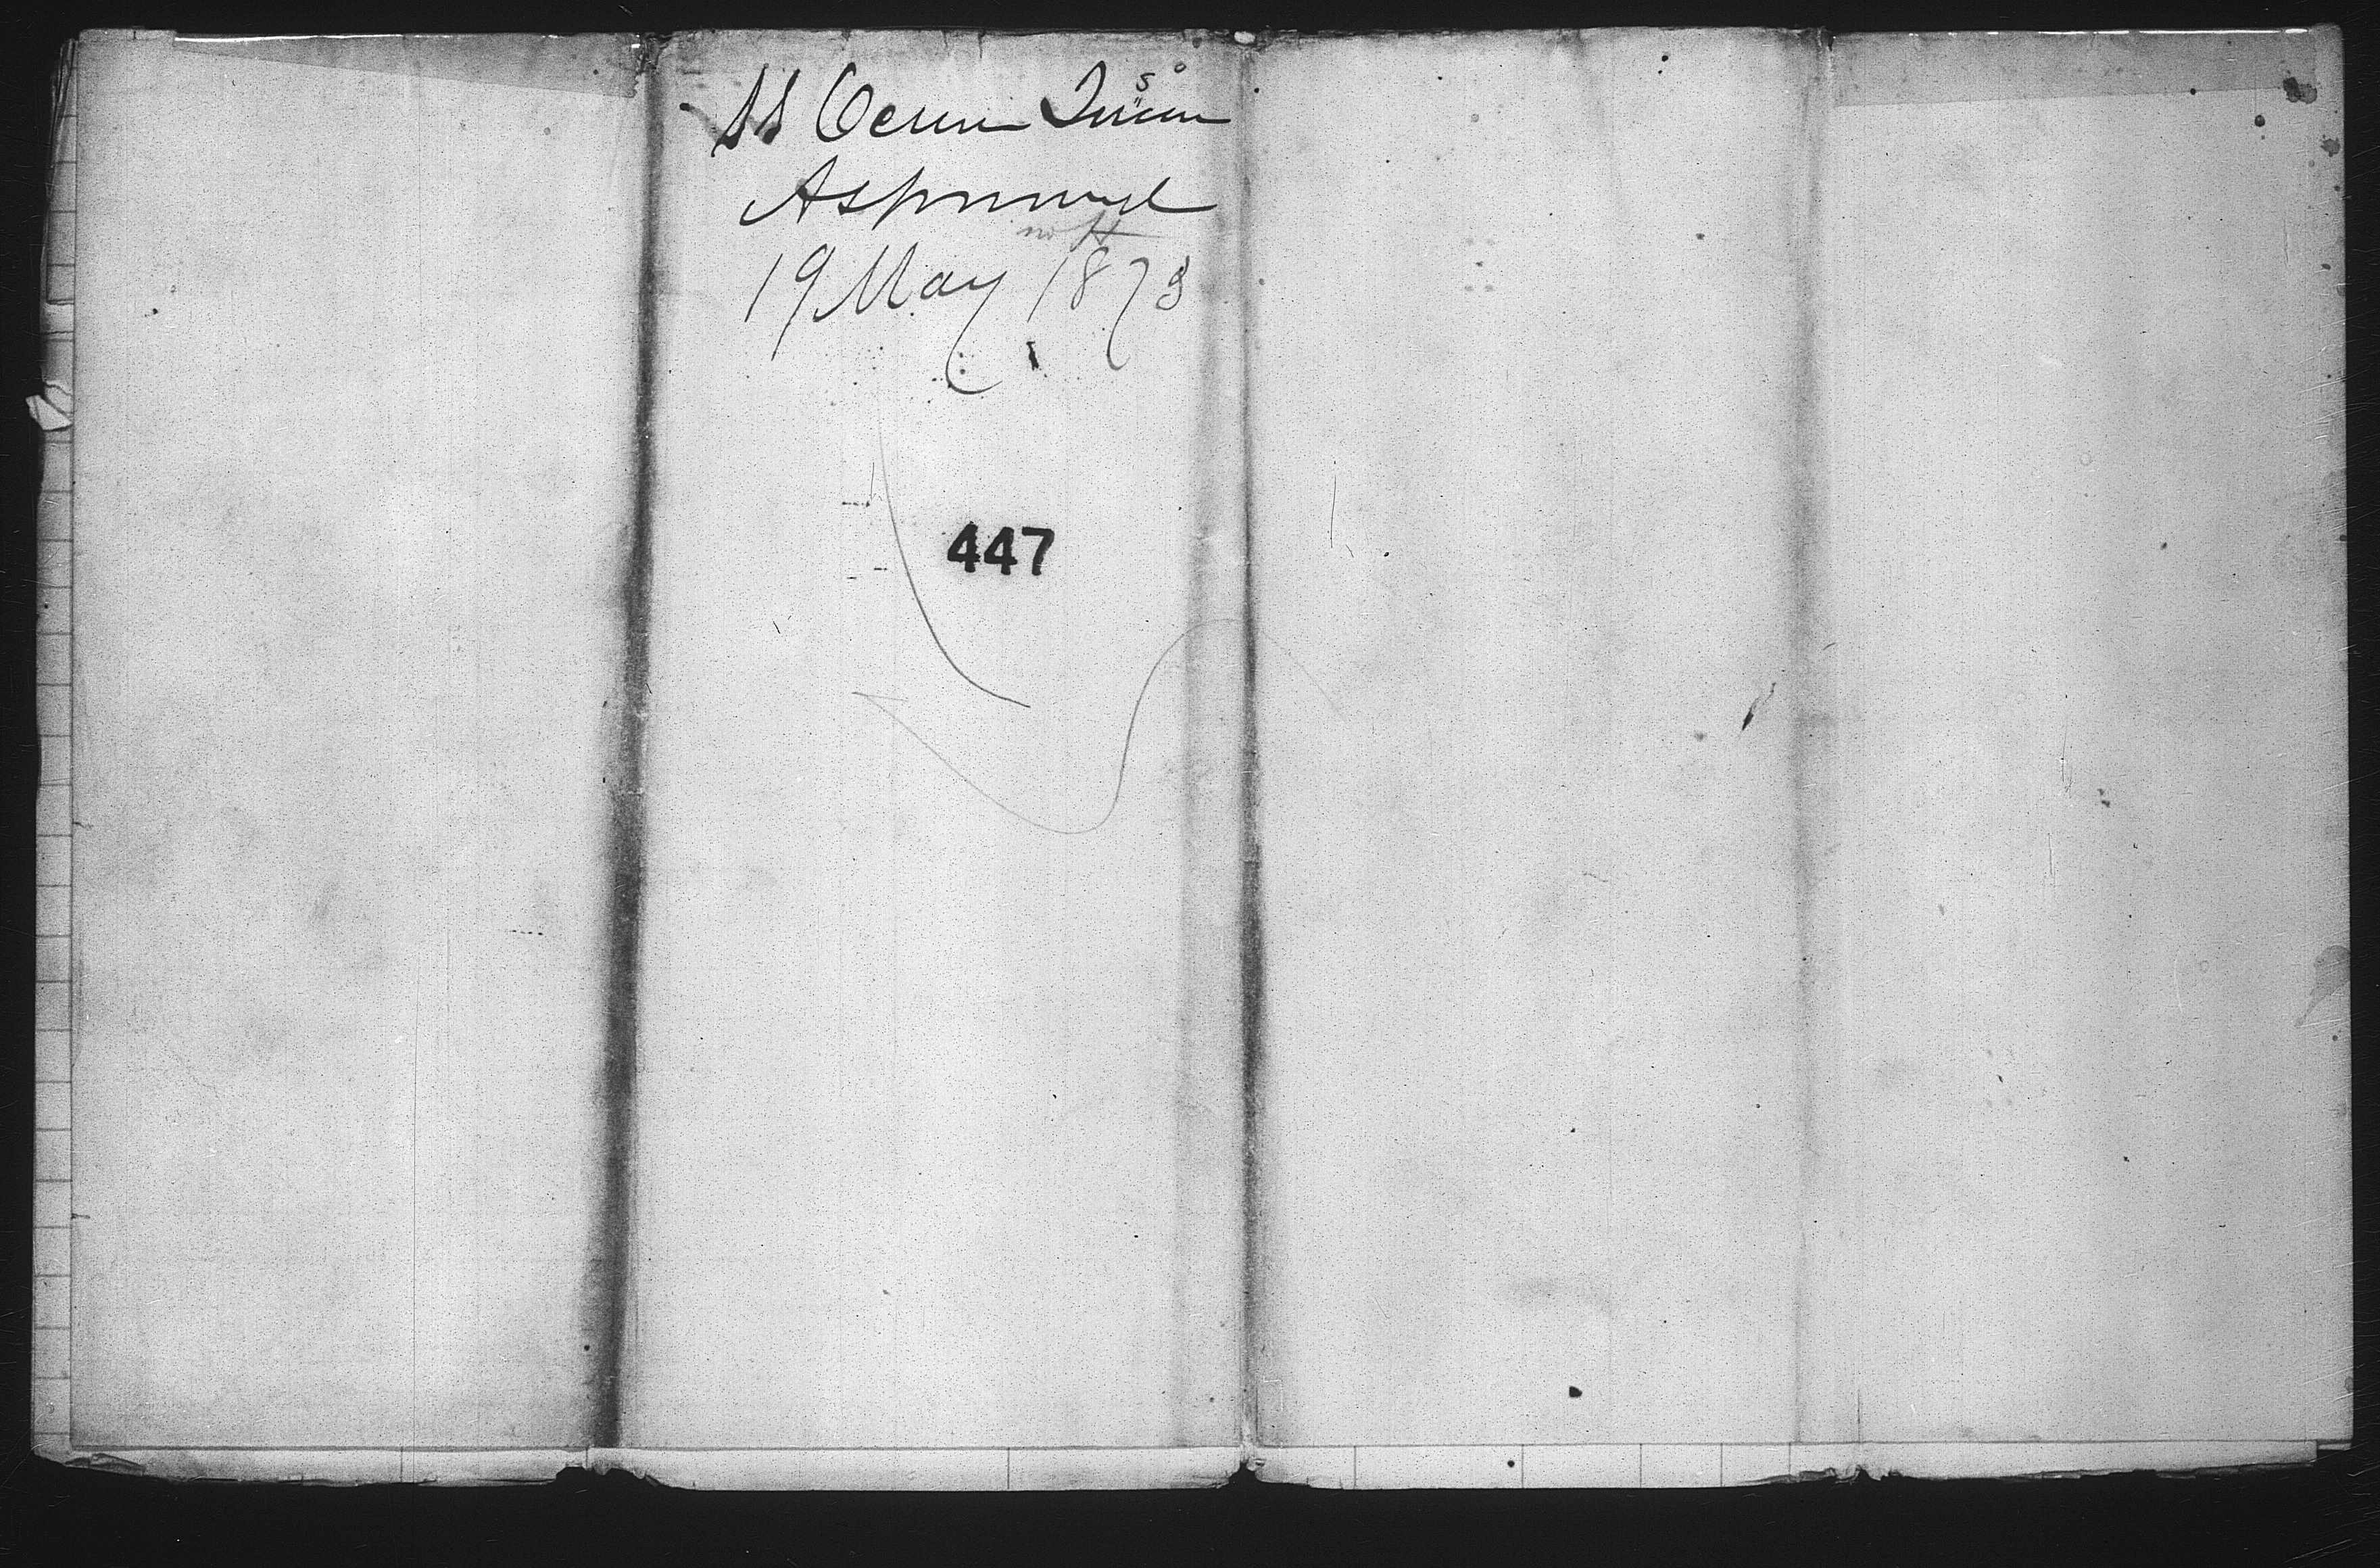 SS Ocean Queen
Aspinwall
19 May 1873
447